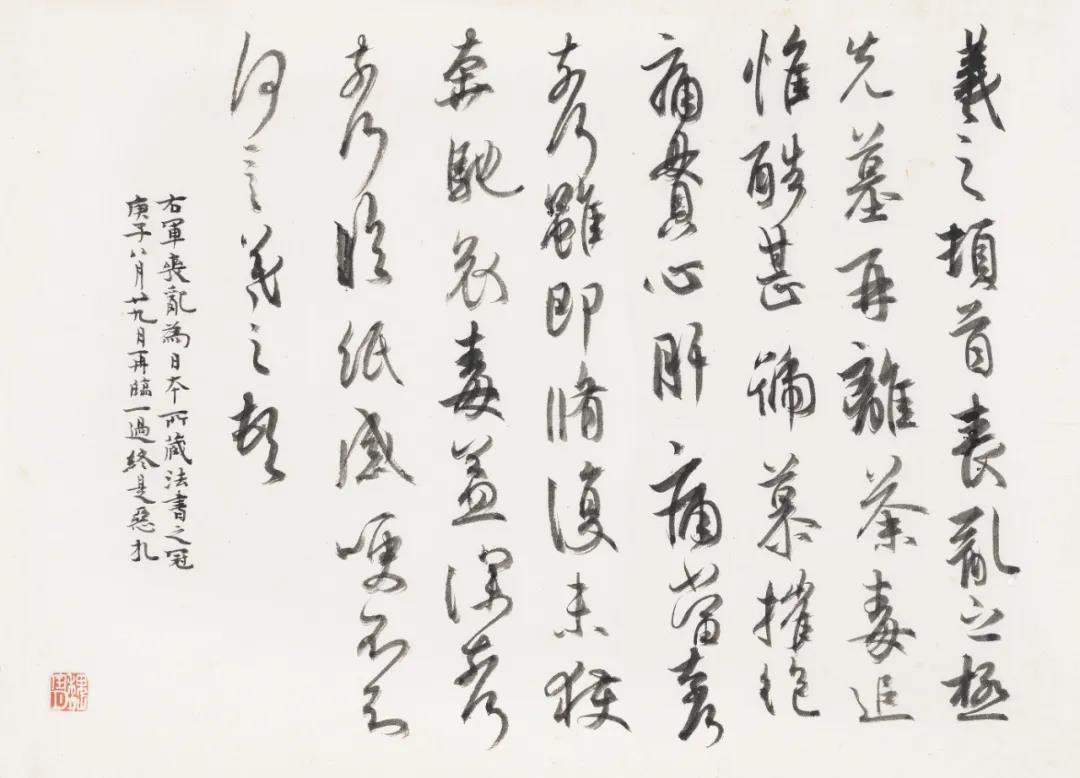 羲之頓首喪亂之極
先墓再離荼毒追
惟酷甚號慕摧絕
痛貫心肝痛當奈何
奈何雖即脩復未獲
奔馳哀毒益深奈何
奈何臨紙感哽不知
何言羲之頓首
右軍喪亂為日本所藏法書之冠
庚子八月廿九日再臨一過終是惡札